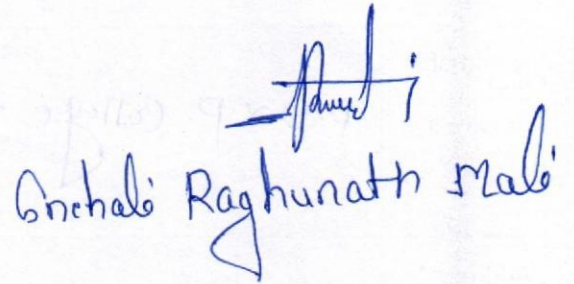 Anchali Raghunath Mali